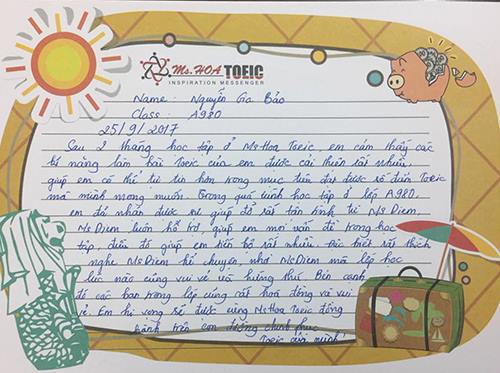 Ms.HOA TOEIC
INSPIRATION MESSENGER
Name : Nguyễn Gia Bảo
Class : A980
25/9/2017
Sau 2 tháng học tập ở Ms Hoa Toeic, em cảm thấy các
kĩ năng làm bài Toeic của em được cải thiện rất nhiều,
giúp em có thể tự tin hơn trong mục tiêu đạt được số điểm Toeic
mà mình mong muốn. Trong quá trình học tập ở lớp A980,
em đã nhận được sự giúp đỡ rất tận tình từ Ms Diem.
Ms Diem luôn hỗ trợ, giúp em mọi vấn đề trong học
tập, điều đó giúp em tiến bộ rất nhiều. Đặc biệt rất thích
nghe Ms Diem kể chuyện, nhờ Ms Diem mà lớp học
lúc nào cũng vui vẻ và hứng thú. Bên cạnh
đó các bạn trong lớp cũng rất hòa đồng và vui
vẻ. Em hi vọng sẽ được cùng Ms Hoa Toeic đồng
hành trên con đường chinh phục
Toeic của mình!